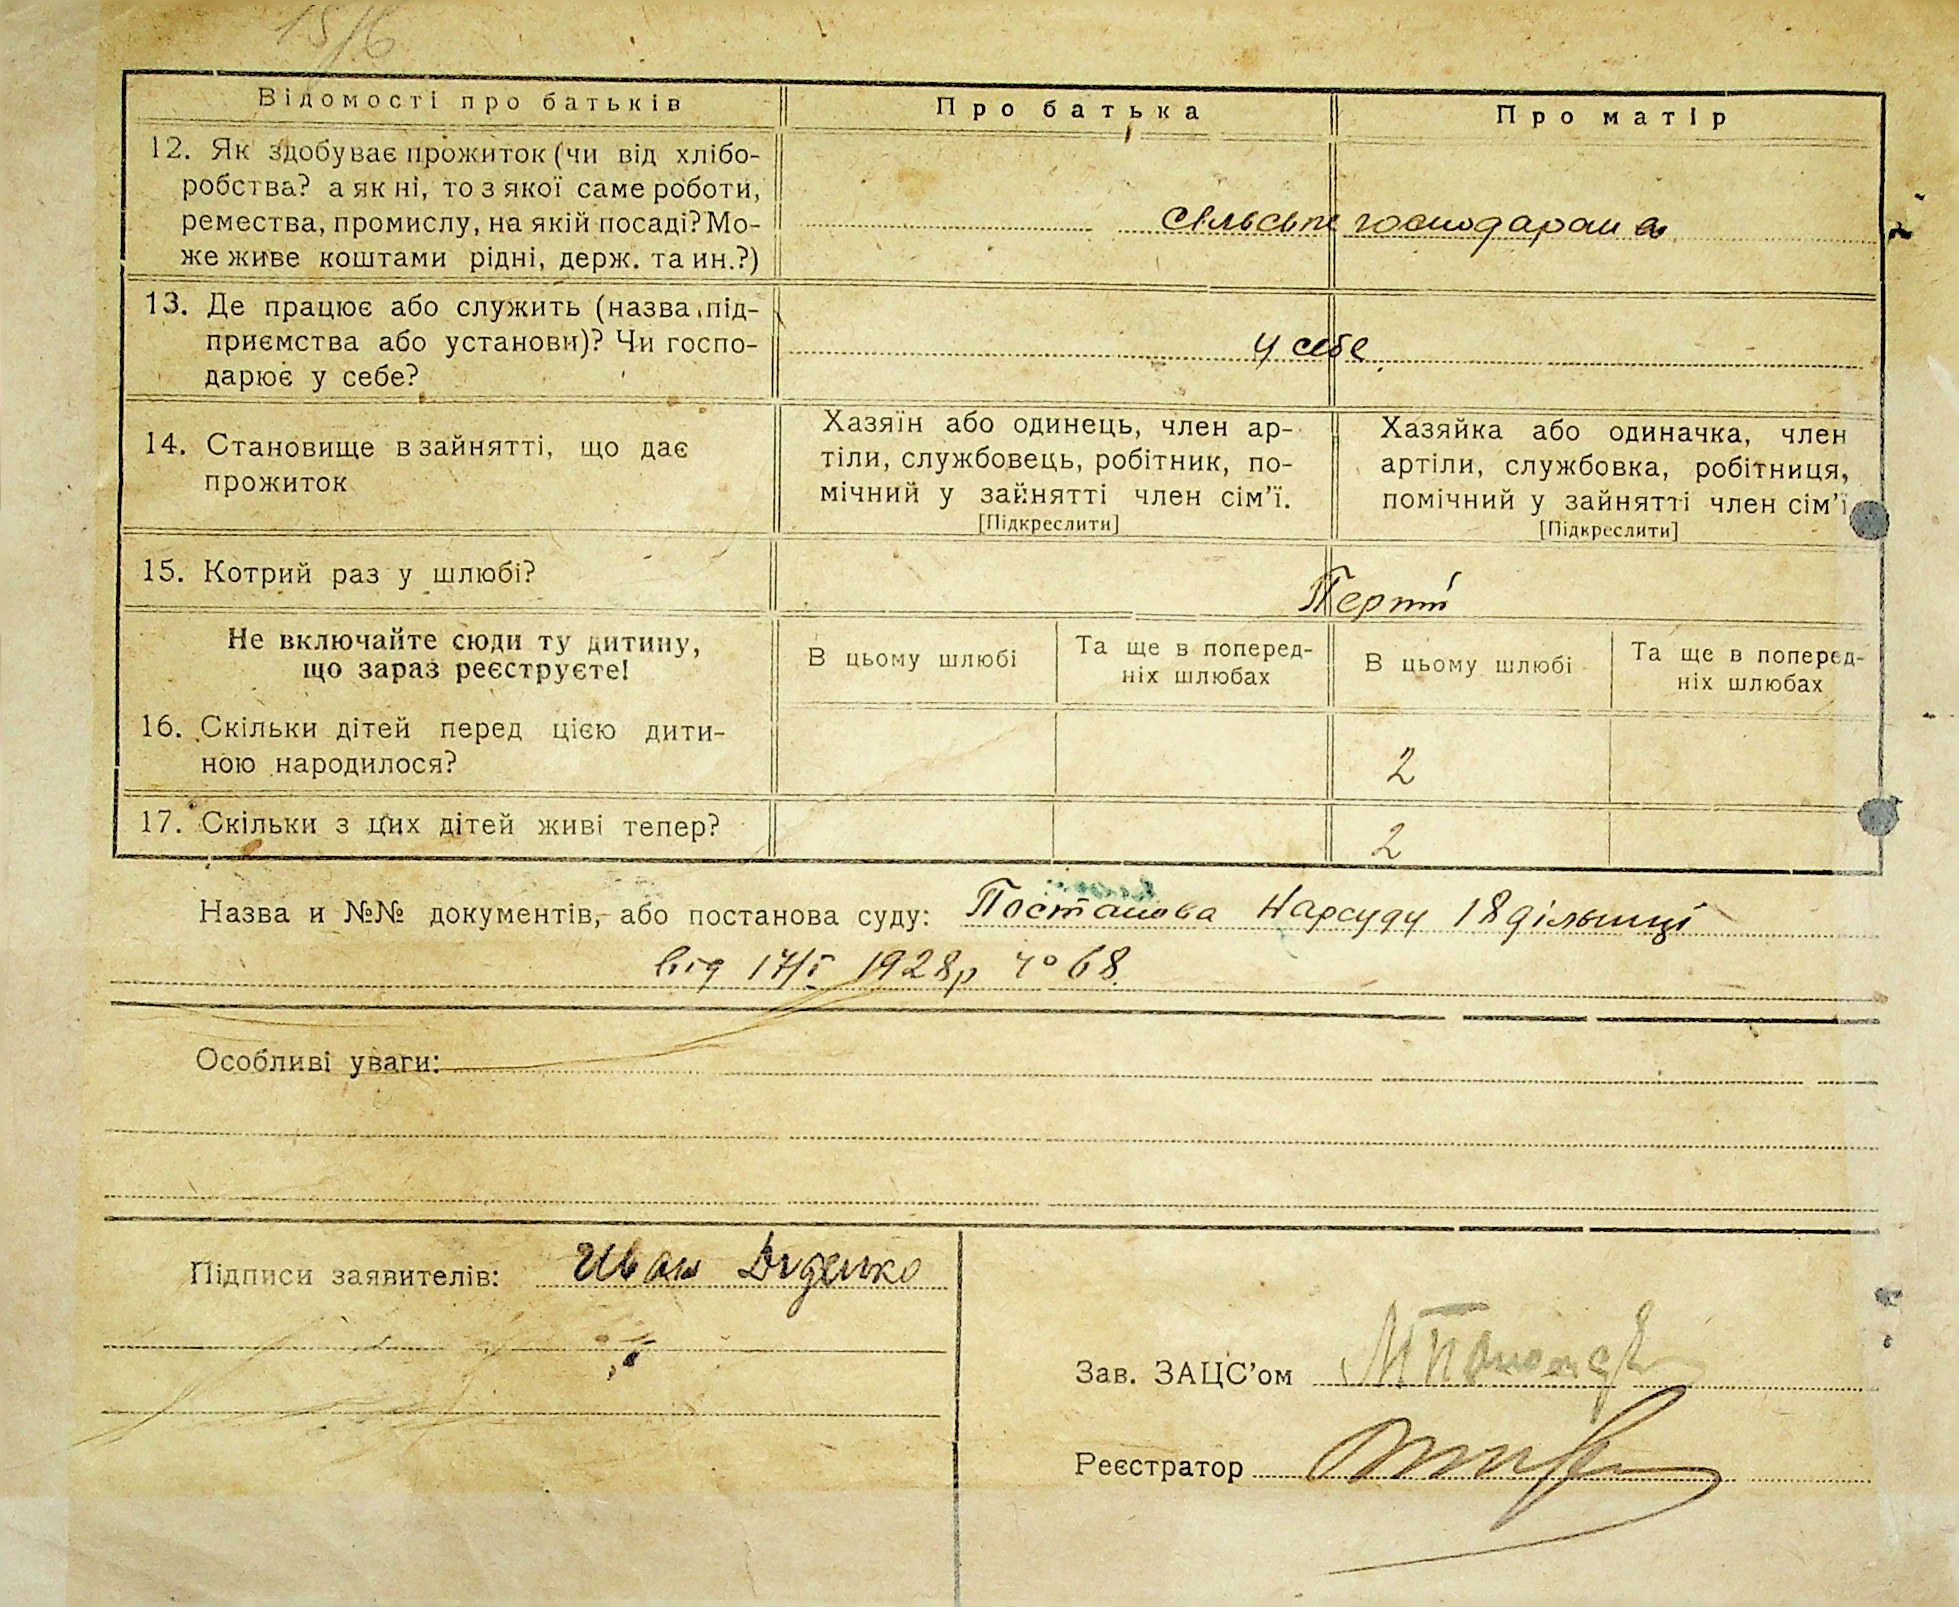 15/6
Відомості про батьків
Про батька
Про матір
12. Як здобуває прожиток (чи від хлібо-
робства? а як ні, то з якої саме роботи,
ремества, промислу, на якій посаді? Мо-
же живе коштами рідні, держ. та ин.?)
сільське господарство
13. Де працює або служить (назва під-
приємства або установи)? Чи госпо-
дарює у себе?
у себе
14. Становище в зайнятті, що дає
прожиток
Хазяїн або одинець, член ар-
тіли, службовець, робітник, по-
мічний у зайнятті член сім'ї.
[Підкреслити]
Хазяйка або одиначка, член
артіли, службовка, робітниця,
помічний у зайнятті член сім'ї
[Підкреслити]
15. Котрий раз у шлюбі?
Не включайте сюди ту дитину,
що зараз реєструєте!
В цьому шлюбі
Та ще в поперед-
ніх шлюбах
В цьому шлюбі
Та ще в поперед-
ніх шлюбах
16. Скільки дітей перед цією дити-
ною народилося?
2
17. Скільки з цих дітей живі тепер?
2
Назва и №№ документів, або постанова суду: Постанова Нарсуду 18 дільниці
від 17/I 1928р чо 68.
Особливі уваги:
Підписи заявителів: Иван
Зав. ЗАЦС'ом
Реєстратор